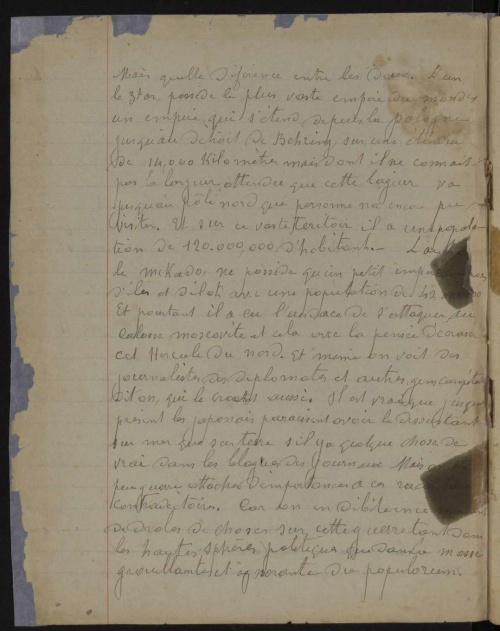 Mais quelle diference entre les deux. L'un
le 3tsar possède le plus vaste empire du monde
un empire qui s'étend depuis la pologne
jusqu'au detroit de Behring, sur une étendue
de 14,000 Kilomètres mais dont il ne connait
pas la largeur attendu que cette lageur va
jusqu'au pôle nord que personne na encore pu
visiter. Et sur ce vaste territoir il a une popula-
tion de 120.000,000 d'habitants. – L'autre
le mikado, ne possède qu'un petit empire
d'îles et d'ilots avec une population de 42
Et pourtant il a eu l'audace de s'attaquer au
colosse moscovite et cela avec la pensée d'écraser
cet Hercule du nord. Et meme on voit des
journalistes des diplomates et autres gens
dit on, qui le croient aussi. Il est vrai que jusqu'à
present les japonais paraissent avoir le dessus tant
sur mer que sur terre s'il y a quelque chose de
vrai dans les blagues des journaux Mais
peu guère attacher d'importance à ces
contradictoires. Car on en débite
de droles de choses sur cette guerre tant dans
les hautes sphères politiques que dans la masse
grouillante et ignorante du